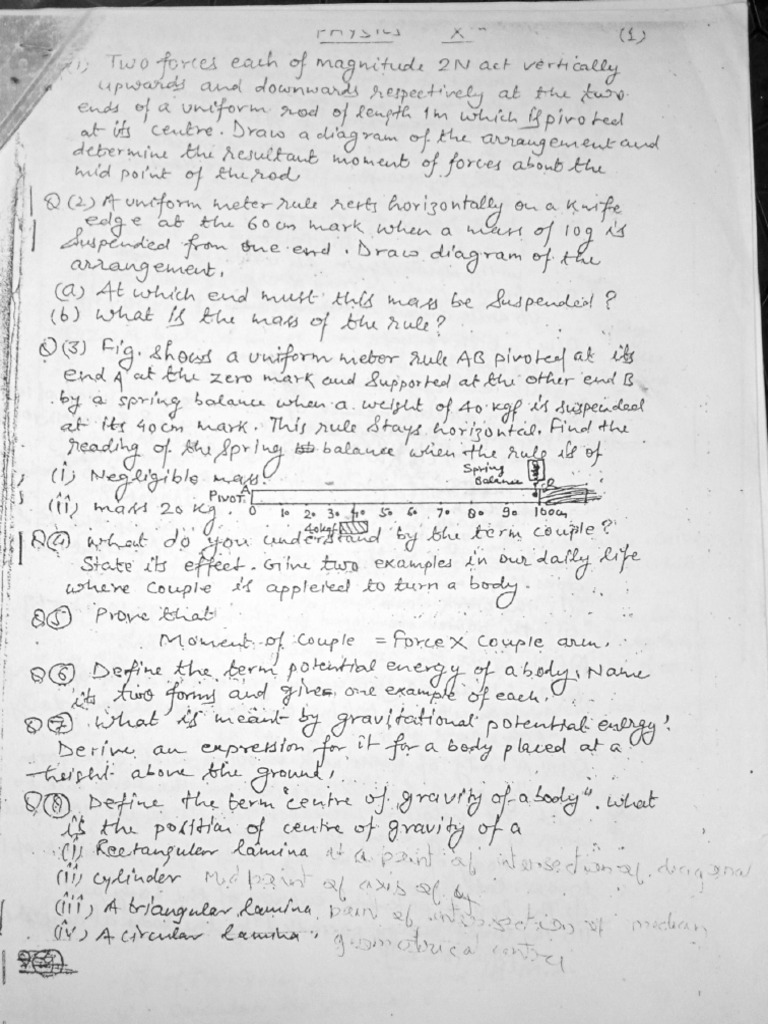 PHYSICS X (1)
(1) Two forces each of magnitude 2N act vertically
upwards and downwards respectively at the two
ends of a uniform rod of length 1m which is pivoted
at its centre. Draw a diagram of the arrangement and
determine the resultant moment of forces about the
mid point of the rod
Q (2) A uniform meter rule rests horizontally on a knife
edge at the 60 cm mark when a mass of 10g is
Suspended from one end. Draw diagram of the
arrangement.
(a) At which end must this mass be Suspended?
(b) What is the mass of the rule?
Q (3) Fig. Shows a uniform meter rule AB pivoted at its
end A at the zero mark and Supported at the other end B
by a spring balance when a weight of 40 kgf is suspended
at its 40cm mark. This rule Stays horizontal. Find the
reading of the Spring balance when the rule is of
(i) Negligible mass.
Spring
Balance
(ii) mass 20 kg.
PIVOT A
B
0 10 20 30 40 50 60 70 80 90 100cm
40kgf
Q (4) What do you understand by the term couple?
State its effect. Give two examples in our daily life
where couple is appleied to turn a body.
Q (5) Prove that
Moment of Couple = Force X Couple arm.
Q (6) Define the term potential energy of a body. Name
its two forms and give one example of each.
Q (7) What is meant by gravitational potential energy?
Derive an expression for it for a body placed at a
height above the ground.
Q (8) Define the term "centre of gravity of a body". What
is the position of centre of gravity of a
(i) Rectangular lamina at a point of intersection of diagonal
(ii) cylinder Mid point of axis of
(iii) A triangular lamina point of intersection of median
(iv) A circular lamina. geometrical centre